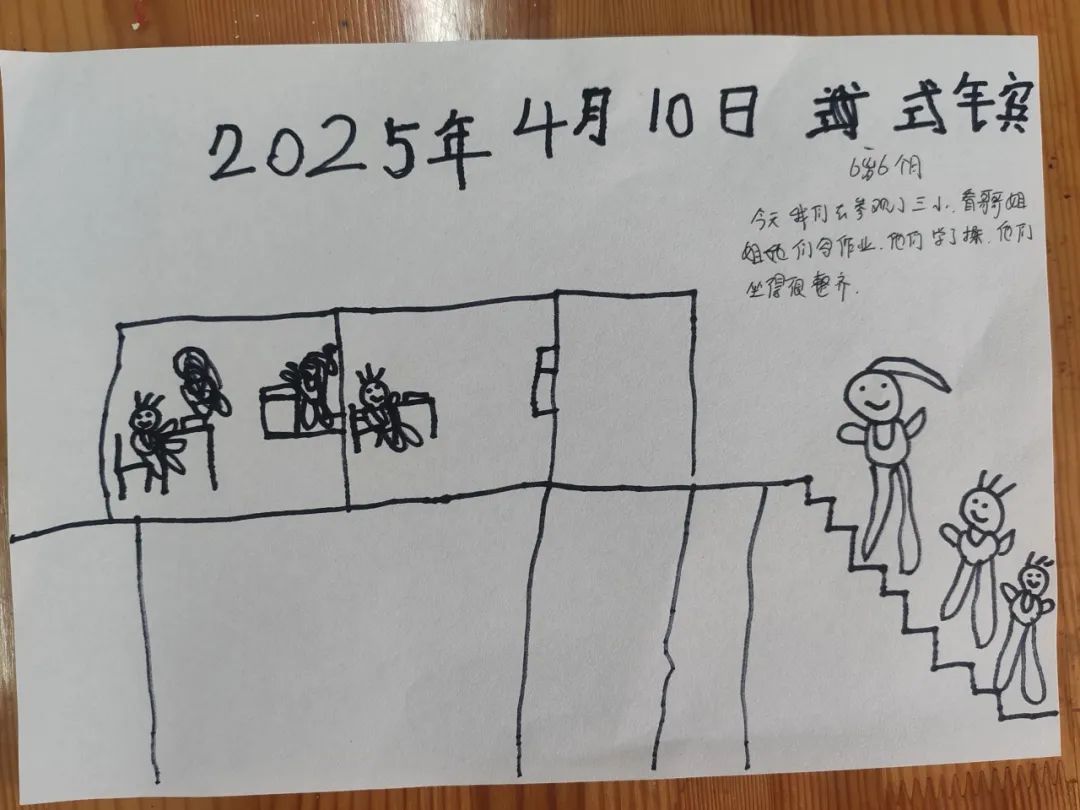 2025年4月10日 式年宾
6岁6个月
今天我们去参观了三小.看哥哥姐
姐她们写作业.他们学了操.他们
坐得很整齐.